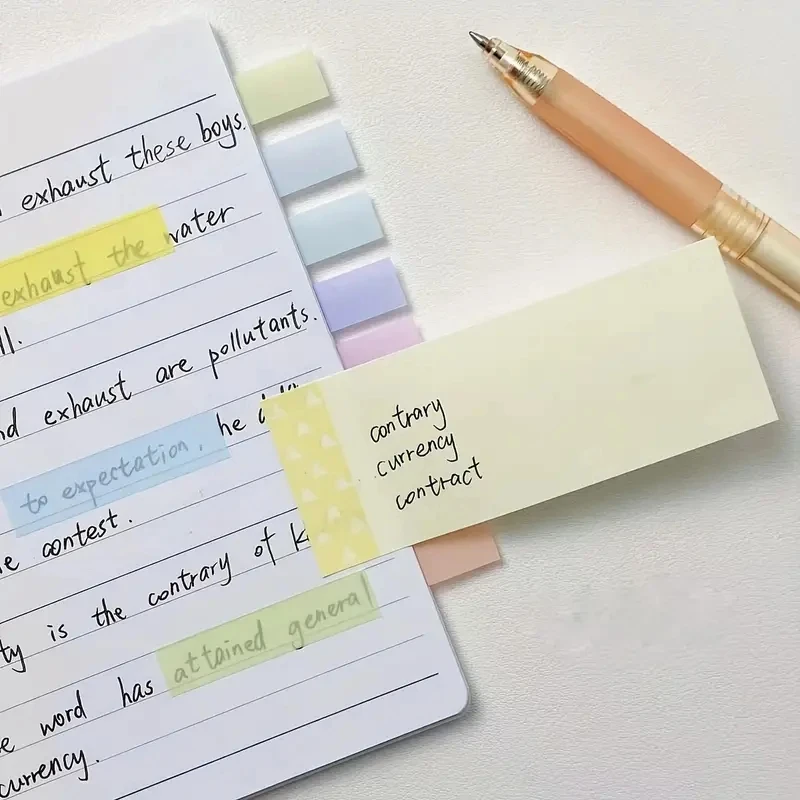 exhaust these boys.
exhaust the water
ll.
nd exhaust are pollutants.
to expectation, he
e contest.
ty is the contrary of K
e word has attained general
currency.
contrary
currency
contract